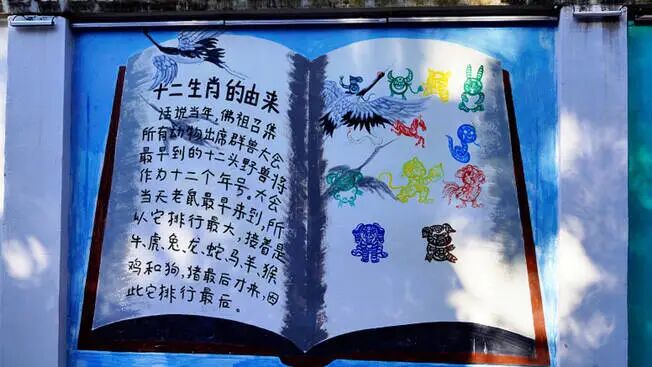 十二生肖的由来
话说当年,佛祖召集
所有动物出席群兽大会
最早到的十二头野兽将
作为十二个年号。大会
当天老鼠最早来到,所
以它排行最大,接着是
牛、虎、兔、龙、蛇、马、羊、猴
鸡和狗,猪最后才来,因
此它排行最后。